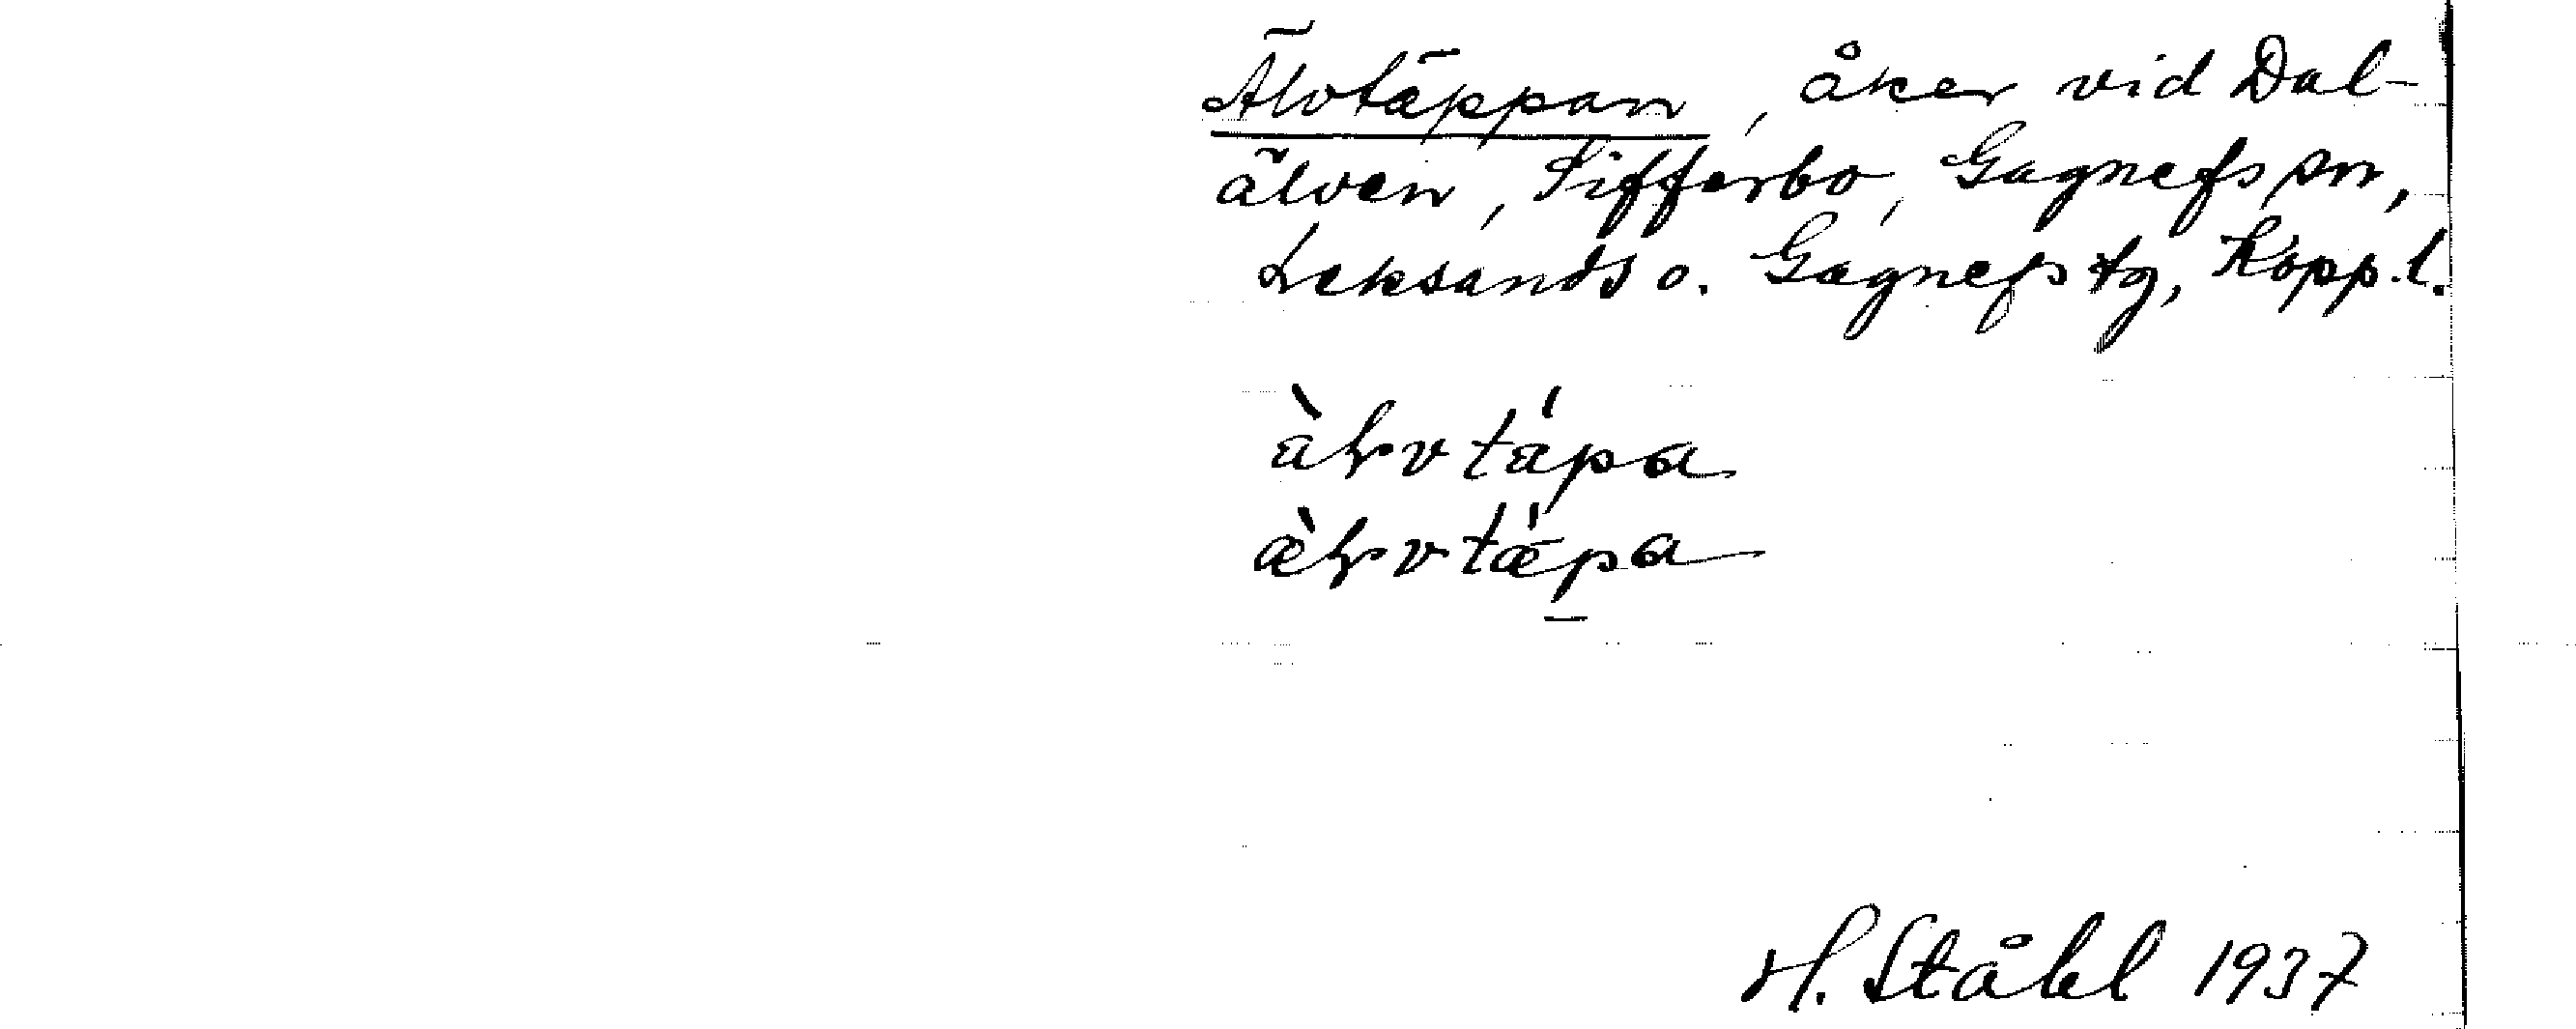 Älvtäppan, åker vid Dal-
älven, Sifferbo, Gagnefs sn,
Leksands o. Gagnefs tg, Kopp.l.
H. Ståhl 1937